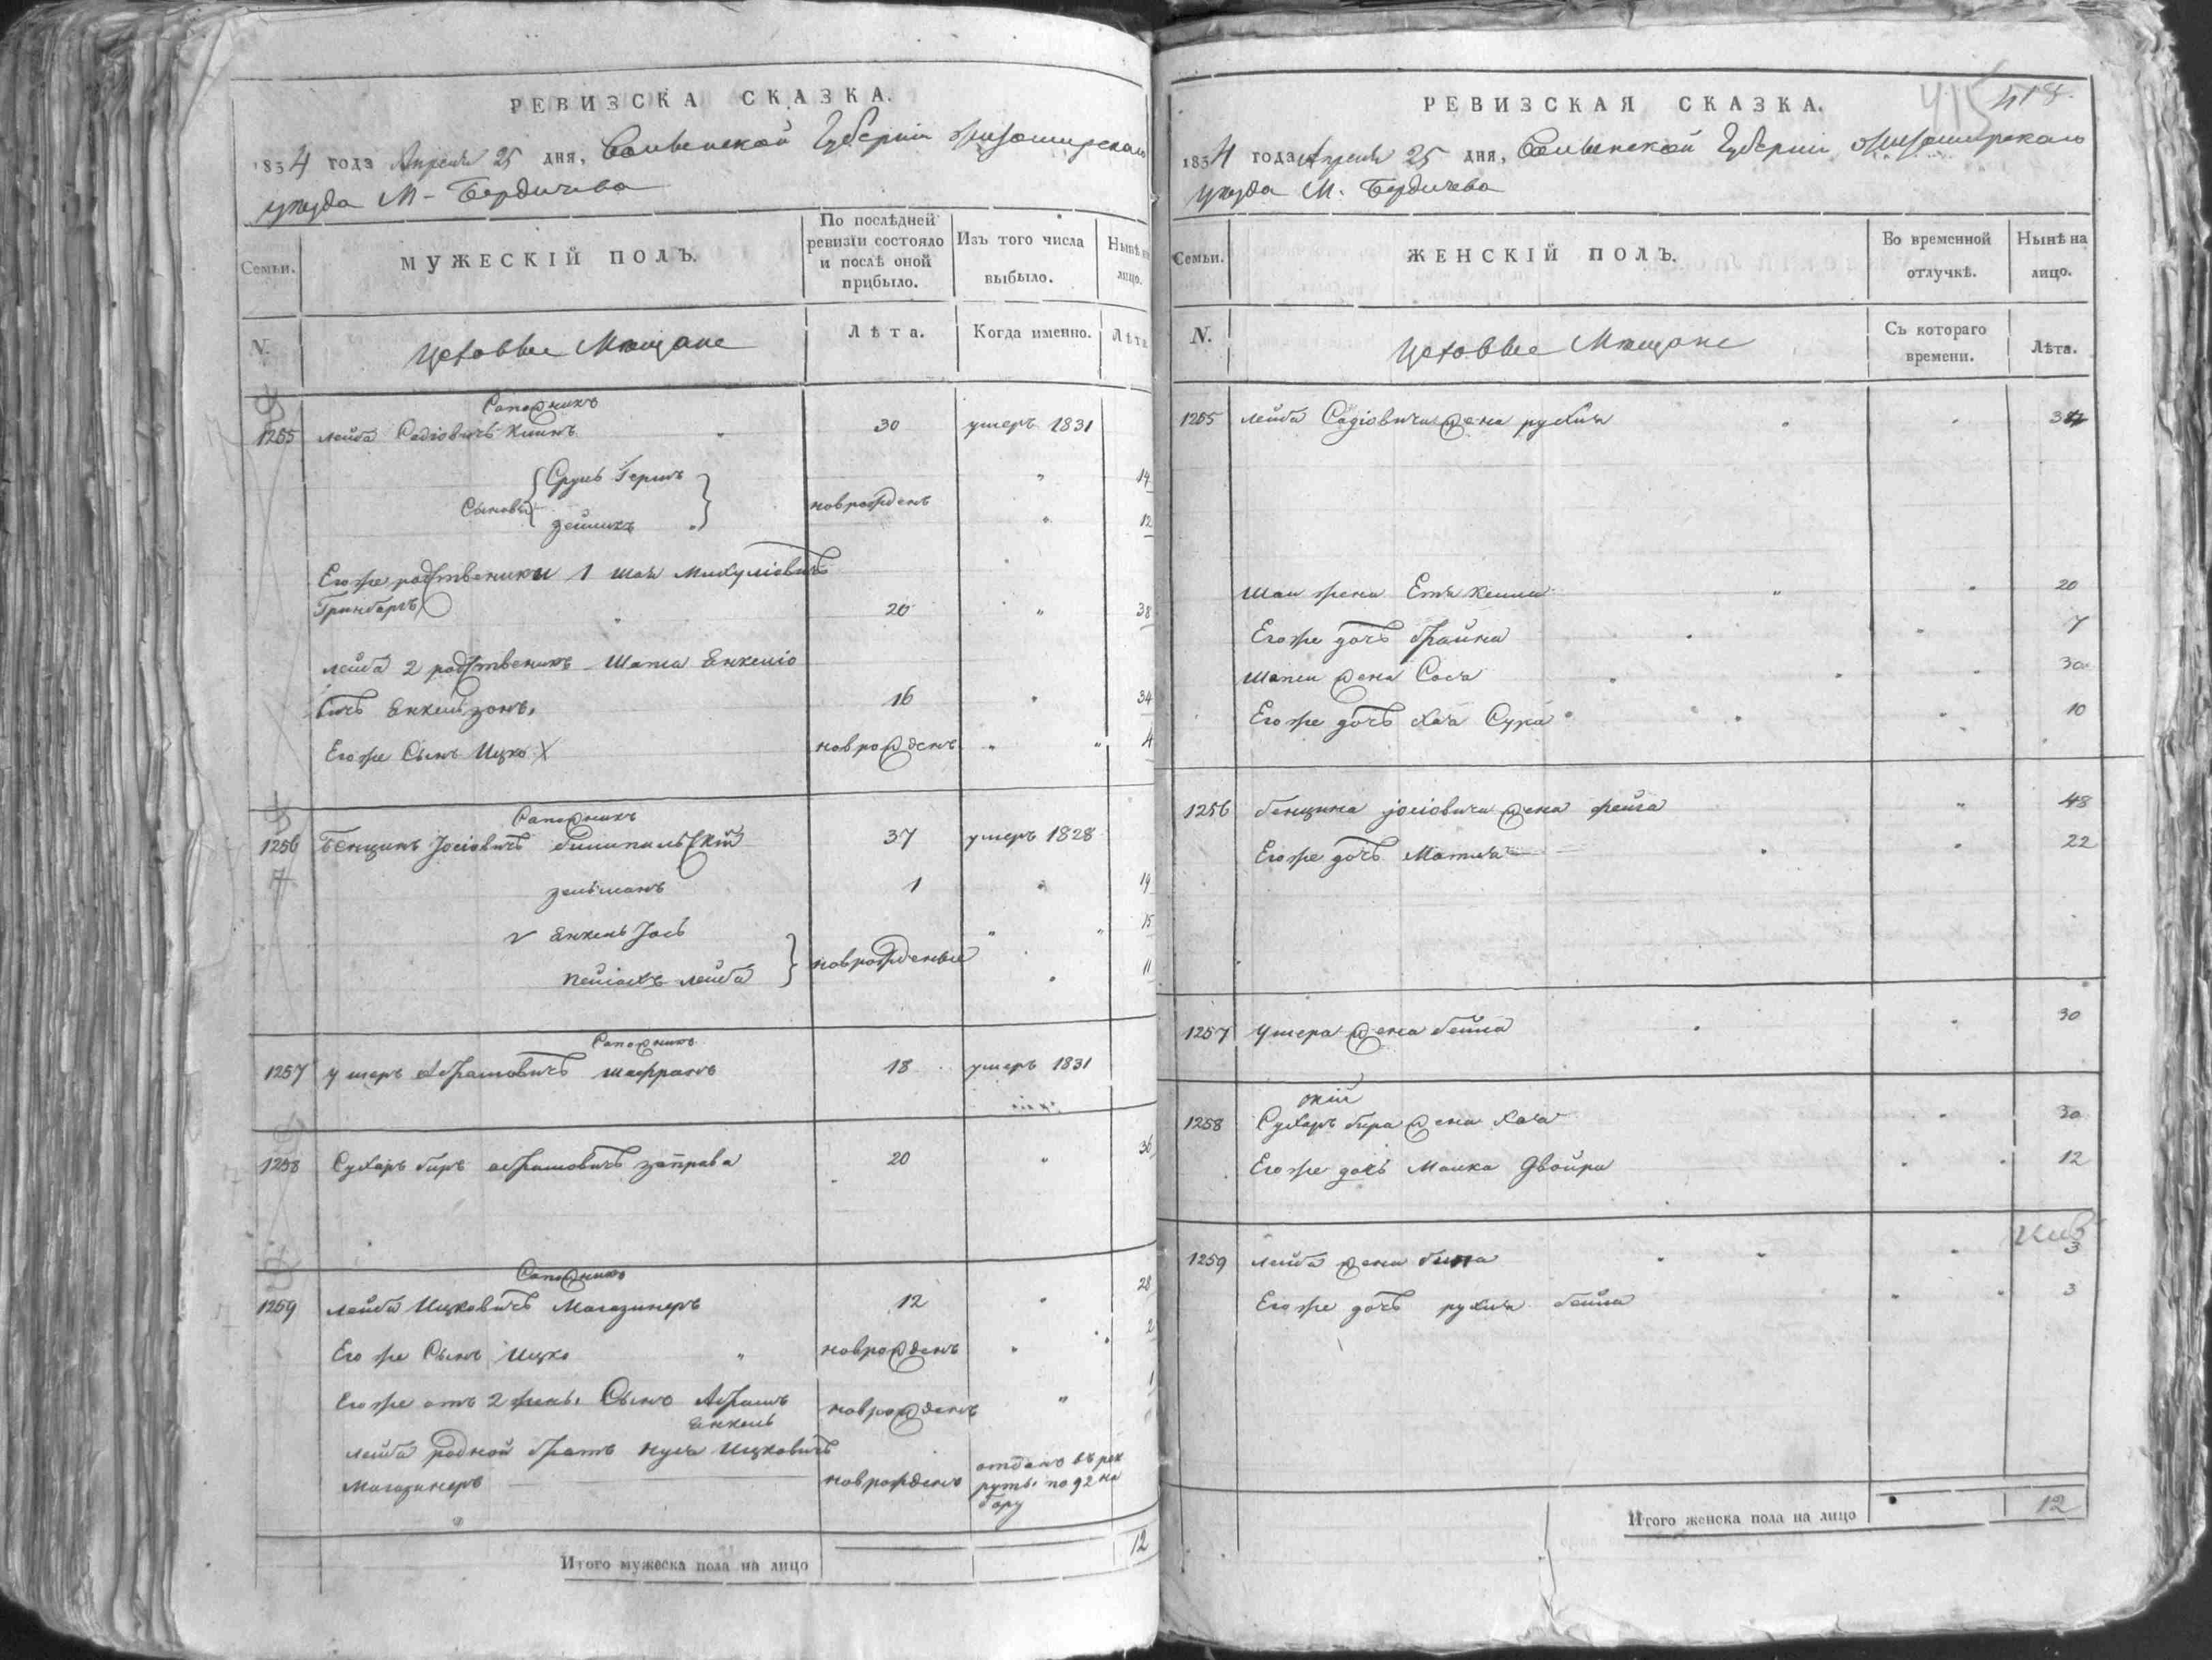 РЕВИЗСКА СКАЗКА.
1834 года Апреля 25 дня, Волынской Губерніи Житомирскаго
уезда М- Бердичева
Семьи.
МУЖЕСКІЙ ПОЛЪ.
По послѣдней ревизіи состояло и послѣ оной прибыло.
Изъ того числа выбыло.
Нынѣ на лицо.
N.
Цеховые Мещане
Лѣта.
Когда именно.
Лѣта
Сапожникъ
1255 лейба Садіовичъ 30 умеръ 1831
Сыновья
Сруль Гершъ 14
новрожденъ
12
Его же родственики 1 Шая Михуліовичъ
Гринбергъ 20 38
лейба 2 родственикъ Шапса Енкеліо
вичъ Енкельзонъ, 16 34
Его же Сынъ Ицко X новрожденъ 4
Сапожникъ
1256 Бенцинъ Јосіовичъ 37 умеръ 1828
зельманъ 1 19
Енкель Јось 15
новрожденые
Пейсахъ лейба 11
Сапожникъ
1257 Ушеръ Абрамовичъ шафранъ 18 умеръ 1831
1258 Сухаръ биръ Абрамовичъ заправа 20 36
Сапожникъ
1259 лейба Ицковичъ Магазинеръ 12 28
Его же Сынъ Ицко новрожденъ 2
Его же отъ 2 жены Сынъ Абрамъ новрожденъ 1
Енкель
лейба родной братъ Нуса Ицковичъ
Магазинеръ новрожденъ отданъ въ рек
руты по 92 на
бору
Итого мужеска пола на лицо 12
РЕВИЗСКАЯ СКАЗКА.
415 418.
1834 года Апреля 25 дня, Волынской Губерніи Житомирскаго
уезда М. Бердичева
Семьи.
ЖЕНСКІЙ ПОЛЪ.
Во временной отлучкѣ.
Нынѣ на лицо.
N.
Цеховые Мещане
Съ котораго времени.
Лѣта.
1255 лейба Садіовича жена рухля
Шаи жена 20
Его же дочъ Фрайма 7
Шапси жена Сося 30
Его же дочъ Хая Сура 10
1256 бенцина Јосіовича жена фейга 48
Его же дочъ Матля 22
1257 Ушера жена бейла 30
1258 Сухаръ бира жена Хая 30
Его же дочъ Малка Двойра 12
1259 лейба жена
Его же дочъ рухля бейла 3
Итого женска пола на лицо 12